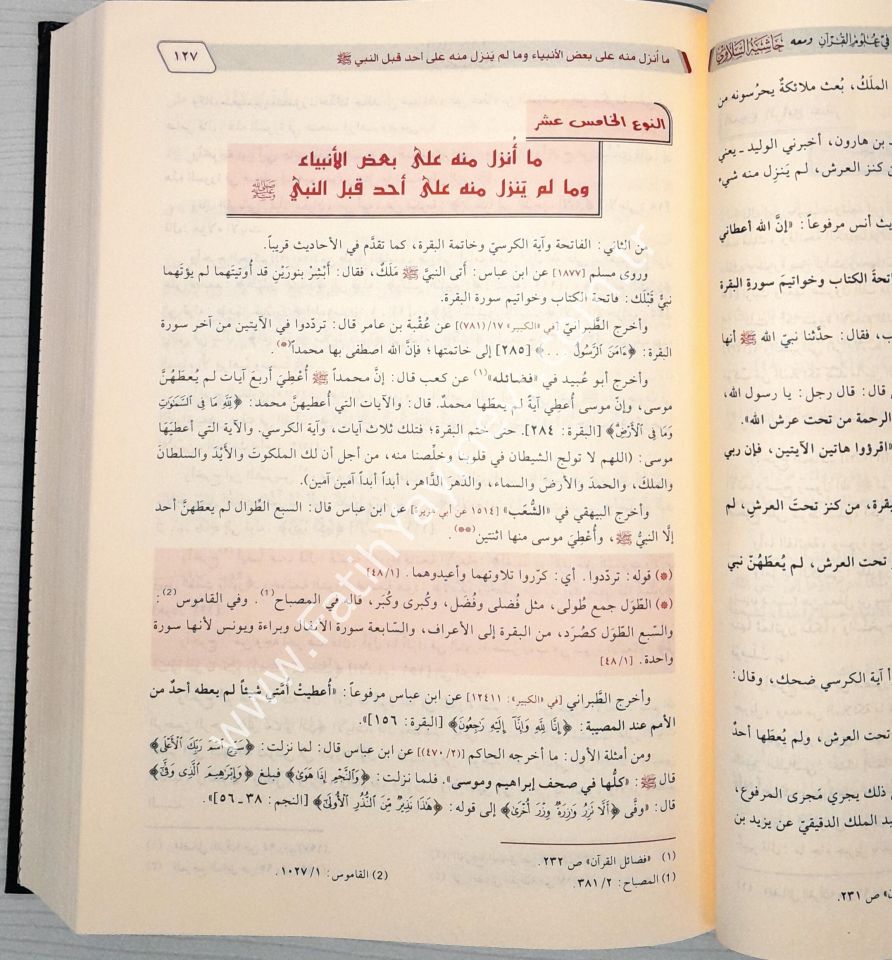 ما أنزل منه على بعض الأنبياء وما لم يَنزل منه على أحد قبل النبي ﷺ
١٢٧
النوع الخامس عشر
ما أُنزل منه على بعض الأنبياء
وما لم يَنزل منه على أحد قبل النبي ﷺ
من الثاني: الفاتحة وآية الكرسيّ وخاتمة البقرة، كما تقدَّم في الأحاديث قريباً.
وروى مسلم [١٨٧٧] عن ابن عباس: أتى النبيَّ ﷺ مَلَكٌ، فقال: أبْشِرْ بنورَيْن قد أُوتيتَهما لم يؤتَهما
نبيٌّ قَبْلَك: فاتحة الكتاب وخواتيم سورة البقرة.
وأخرج الطَّبرانيّ [في «الكبير» ١٧/(٧٨١)] عن عُقْبة بن عامر قال: تردّدوا في الآيتين من آخر سورة
البقرة: ﴿ءَامَنَ ٱلرَّسُولُ . . .﴾ [٢٨٥] إلى خاتمتها؛ فإنَّ الله اصطفى بها محمداً(*).
وأخرج أبو عُبيد في «فضائله»(١) عن كعب قال: إنَّ محمداً ﷺ أُعْطِيَ أربعَ آيات لم يُعطَهُنَّ
موسى، وإنّ موسى أُعطي آيةً لم يعطَها محمدٌ. قال: والآيات التي أُعطيهنَّ محمد: ﴿لِلَّهِ مَا فِي ٱلسَّمَٰوَٰتِ
وَمَا فِي ٱلْأَرْضِ﴾ [البقرة: ٢٨٤]. حتى ختم البقرة؛ فتلك ثلاث آيات، وآية الكرسي. والآية التي أعطيَها
موسى: (اللهم لا تولج الشيطان في قلوبنا وخلِّصنا منه، من أجل أن لك الملكوتَ والأَيْدَ والسلطانَ
والملكَ، والحمدَ والأرضَ والسماء، والدَهرَ الدَّاهر، أبداً أبداً آمين آمين).
وأخرج البيهقي في «الشُعَب» [١٥١٤ عن أبي هريرة] عن ابن عباس قال: السبع الطِّوال لم يعطَهنَّ أحد
إلَّا النبيُّ ﷺ، وأُعْطِيَ موسى منها اثنتين(**).
(*) قوله: تردّدوا. أي: كرّروا تلاوتهما وأعيدوهما. [٤٨/١]
(*) الطّوَل جمع طُولى، مثل فُضلى وفُضَل، وكُبرى وكُبَر، قاله في المصباح(1). وفي القاموس(2):
والسّبع الطّوَل كصُرَد، من البقرة إلى الأعراف، والسّابعة سورة الأنفال وبراءة ويونس لأنها سورة
واحدة. [٤٨/١]
وأخرج الطَّبراني [في «الكبير»: ١٢٤١١] عن ابن عباس مرفوعاً: «أُعطيتْ أمَّتي شيئاً لم يعطه أحد من
الأمم عند المصيبة: ﴿إِنَّا لِلَّهِ وَإِنَّآ إِلَيْهِ رَٰجِعُونَ﴾ [البقرة: ١٥٦]».
ومن أمثلة الأول: ما أخرجه الحاكم [(٤٧٠/٢)] عن ابن عباس قال: لما نزلت: ﴿سَبِّحِ ٱسْمَ رَبِّكَ ٱلْأَعْلَى﴾
قال ﷺ: «كلُّها في صحف إبراهيم وموسى». فلما نزلت: ﴿وَٱلنَّجْمِ إِذَا هَوَىٰ﴾ فبلغ ﴿وَإِبْرَٰهِيمَ ٱلَّذِي وَفَّىٰٓ﴾
قال: «وفّى ﴿أَلَّا تَزِرُ وَازِرَةٌ وِزْرَ أُخْرَىٰ﴾ إلى قوله: ﴿هَٰذَا نَذِيرٌ مِّنَ ٱلنُّذُرِ ٱلْأُولَىٰٓ﴾ [النجم: ٣٨ ـ ٥٦]».
(١) «فضائل القرآن» ص ٢٣٢.
(1) المصباح: ٣٨١/٢.
(2) القاموس: ١٠٢٧/١.
في علوم القرآن ومعه حاشية السلاوي
الملَكُ، بُعث ملائكةٌ يحرُسونه من
بن هارون، أخبرني الوليد ـ يعني
ن كنز العرش، لم يَنزِل منه شيء
يث أنس مرفوعاً: «إنَّ الله أعطاني
اتحةَ الكتاب وخواتيمَ سورة البقرة
ب، فقال: حدَّثنا نبيّ الله ﷺ أنها
قال: قال رجل: يا رسول الله،
الرحمة من تحت عرش الله».
«اقرؤوا هاتين الآيتين، فإن ربي
بقرة، من كنز تحتَ العرش، لم
تحت العرش، لم يُعطَهُنّ نبي
أ آية الكرسي ضحك، وقال:
تحت العرش، ولم يُعطَها أحدٌ
ذلك يجري مَجرى المرفوع،
بد الملك الدقيقيّ عن يزيد بن
ن» ص ٢٣١.
www.FatihYayinevi.com.tr